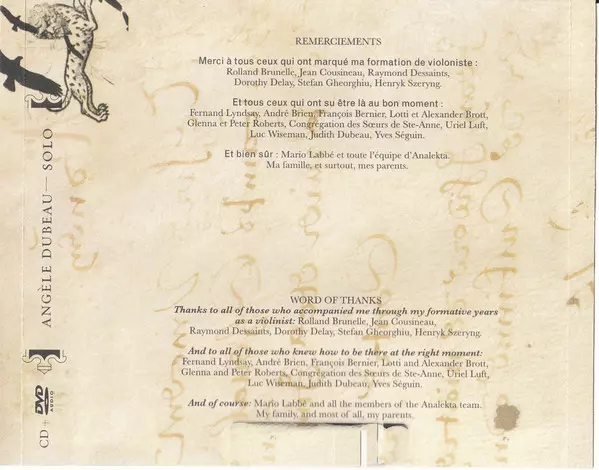 REMERCIEMENTS
Merci à tous ceux qui ont marqué ma formation de violoniste :
Rolland Brunelle, Jean Cousineau, Raymond Dessaints,
Dorothy Delay, Stefan Gheorghiu, Henryk Szeryng.
Et tous ceux qui ont su être là au bon moment :
Fernand Lyndsay, André Brien, François Bernier, Lotti et Alexander Brott,
Glenna et Peter Roberts, Congrégation des Sœurs de Ste-Anne, Uriel Luft,
Luc Wiseman, Judith Dubeau, Yves Séguin.
Et bien sûr : Mario Labbé et toute l'équipe d'Analekta.
Ma famille, et surtout, mes parents.
WORD OF THANKS
Thanks to all of those who accompanied me through my formative years
as a violinist: Rolland Brunelle, Jean Cousineau,
Raymond Dessaints, Dorothy Delay, Stefan Gheorghiu, Henryk Szeryng.
And to all of those who knew how to be there at the right moment:
Fernand Lyndsay, André Brien, François Bernier, Lotti and Alexander Brott,
Glenna and Peter Roberts, Congrégation des Sœurs de Ste-Anne, Uriel Luft,
Luc Wiseman, Judith Dubeau, Yves Séguin.
And of course: Mario Labbé and all the members of the Analekta team.
My family, and most of all, my parents.
ANGÈLE DUBEAU — SOLO
CD + DVD
AUDIO